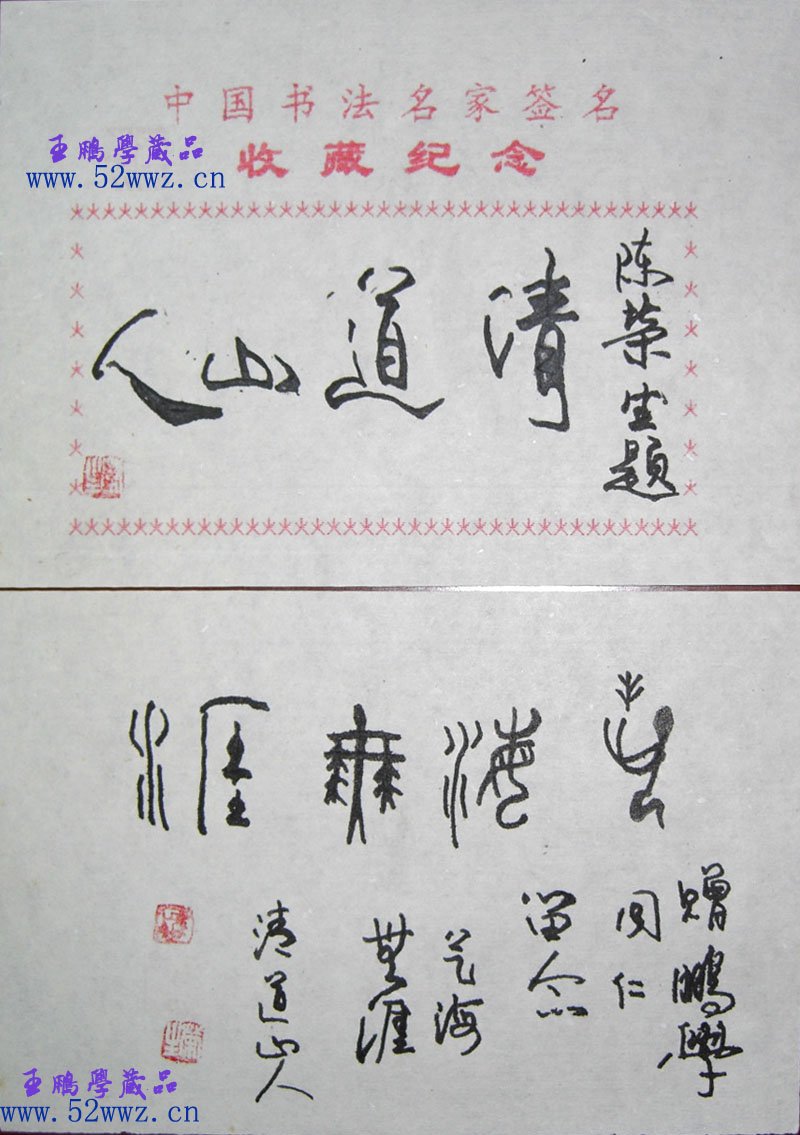 中国书法名家签名
王鵬學蔵品
收藏纪念
www.52wwz.cn
陈荣题
清道山人
艺海無涯
赠鹏學
同仁
留念
艺海
無涯
清道山人
王鵬學蔵品
www.52wwz.cn